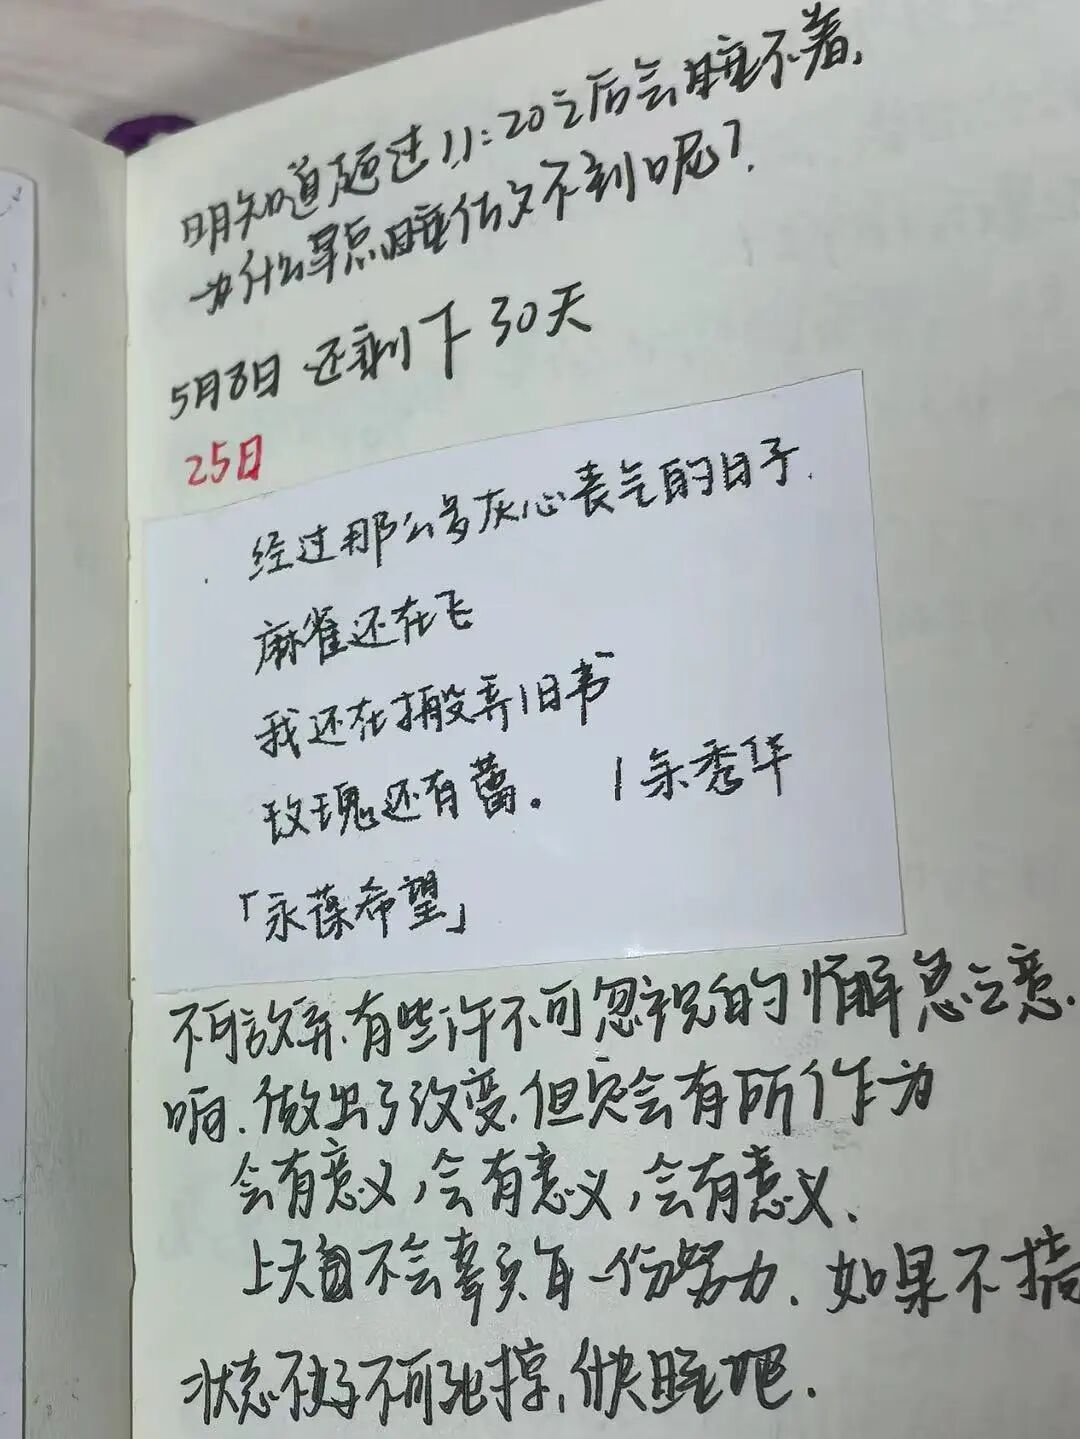 明知道超过11:20之后会睡不着,
为什么早点睡你又不到呢?
5月8日 还剩下 30天
25日
经过那么多灰心丧气的日子.
麻雀还在飞
我还在搬弄旧书
玫瑰还有蕾。 |余秀华
「永葆希望」
不可放弃.有些许不可忽视的 总之意.
响.做出了改变.但定会有所作为
会有意义,会有意义,会有意义.
上天自不会辜负每一份努力.如果不搞
状态不好不可 掉,快睡吧.